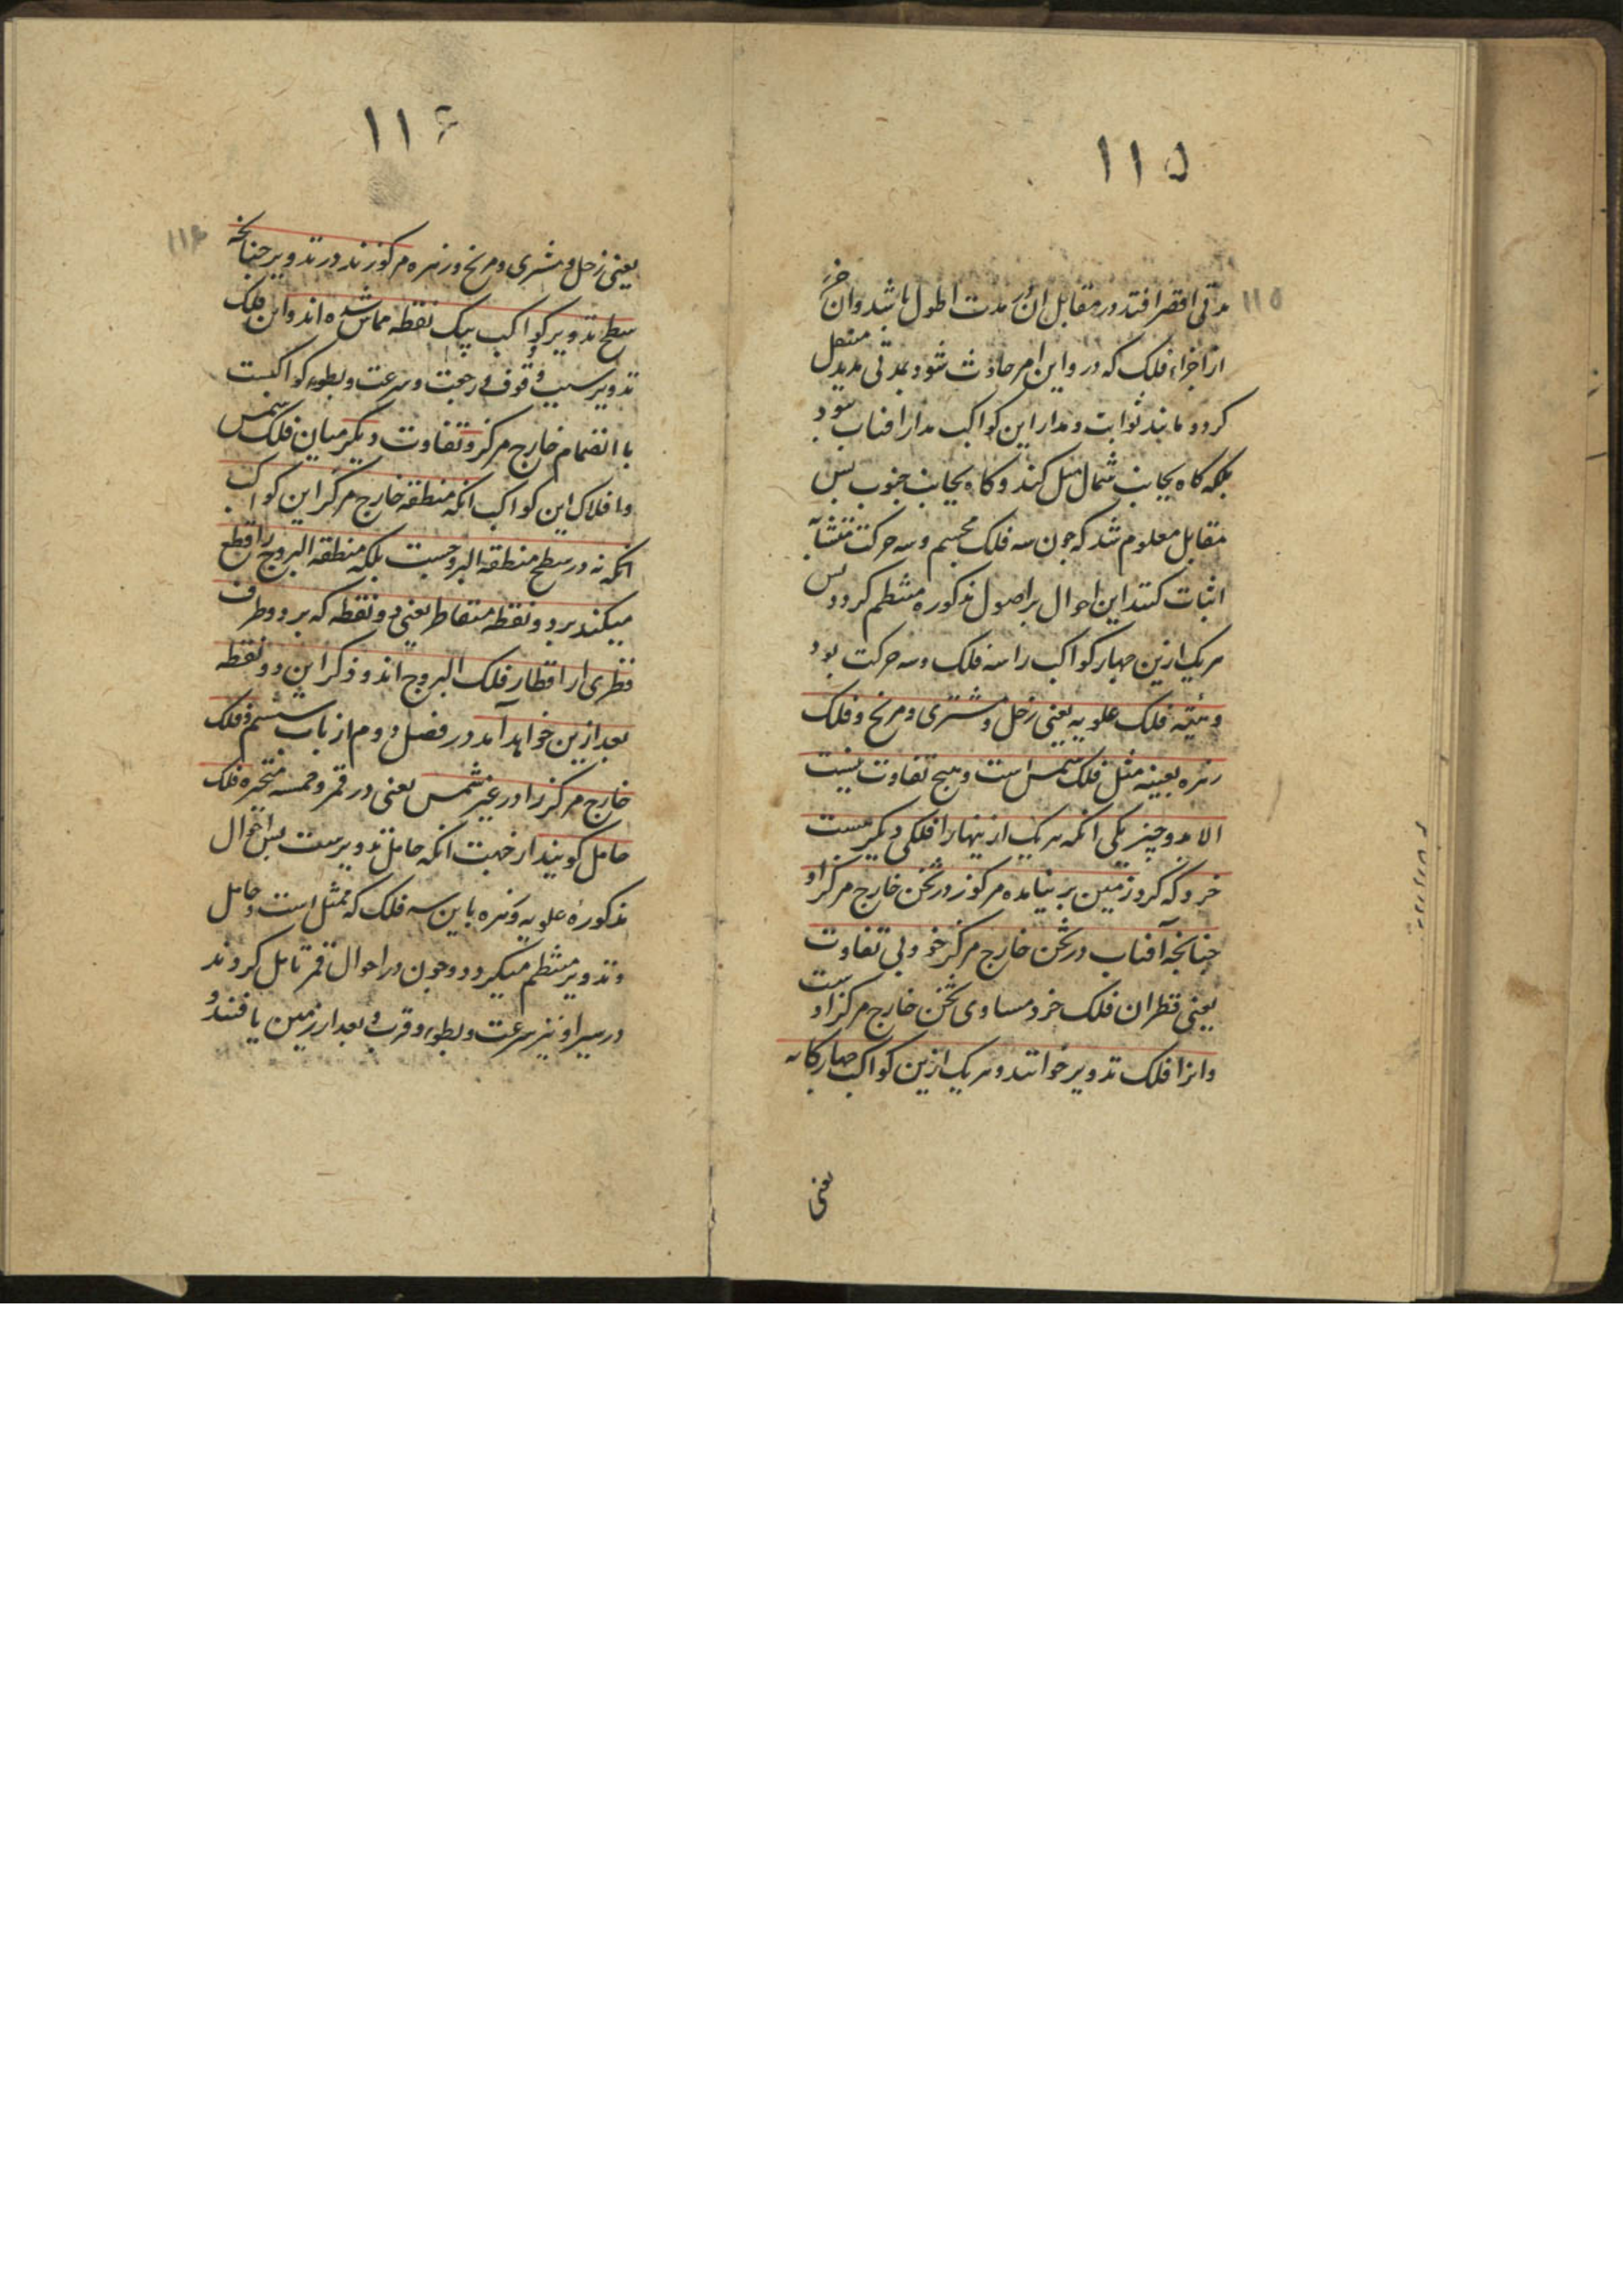 ۱۱۵
۱۱۵
مدتی اقصر افتد در مقابل ان در مدت اطول باشد و ان جزء
از اجزاء فلک که در و این امر حادث شود بمدتی مدید منتقل
کردد مانند ثوابت و مدار این کواکب مدار افتاب نبود
بلکه کاه بجانب شمال میل کند و کاه بجانب جنوب پس
مقابل معلوم شد که چون سه فلک مجسم و سه حرکت متشابه
اثبات کنند این احوال بر اصول مذکوره منتظم کردد پس
هریک ازین چهار کواکب را سه فلک و سه حرکت بود
و هیئه فلک علویه یعنی زحل و مشتری و مریخ و فلک
زهره بعینه مثل فلک شمس است و هیچ تفاوت نیست
الا بدو چیز یکی انکه هریک از ینها را فلکی دیکر هست
خرد که کرد زمین بر نیامده مرکوز در ثخن خارج مرکز او
چنانچه آفتاب در ثخن خارج مرکز خود بی تفاوت
یعنی قطر ان فلک خرد مساوی ثخن خارج مرکز اوست
و انرا فلک تدویر خوانند و هریک ازین کواکب چهارکانه
یعنی
۱۱۶
۱۱۶
یعنی زحل و مشتری و مریخ و زهره مرکوزند در تدویر چنانچه
سطح تدویر کواکب بیک نقطه مماس شده اند و این فلک
تدویر سبب وقوف و رجعت و سرعت و بطوء کواکبست
با انضمام خارج مرکز و تفاوت دیکر میان فلک شمس
و افلاک این کواکب انکه منطقه خارج مرکز این کواکب
انکه نه در سطح منطقه البروجست بلکه منطقه البروج را قطع
میکند بر دو نقطه متقاطر یعنی دو نقطه که بر دو طرف
قطری از اقطار فلک البروج اند و ذکر این دو نقطه
بعد ازین خواهد آمد در فصل دوم از باب ششم و فلک
خارج مرکز را در غیر شمس یعنی در قمر و خمسه متحیره فلک
حامل کویند از جهت انکه حامل تدویرست پس احوال
مذکورهٔ علویه و زهره باین سه فلک که ممثل است و حامل
و تدویر منتظم میکردد و چون در احوال قمر تامل کردند
در سیر او نیز سرعت و بطوء و قرب و بعد از زمین یافتند و